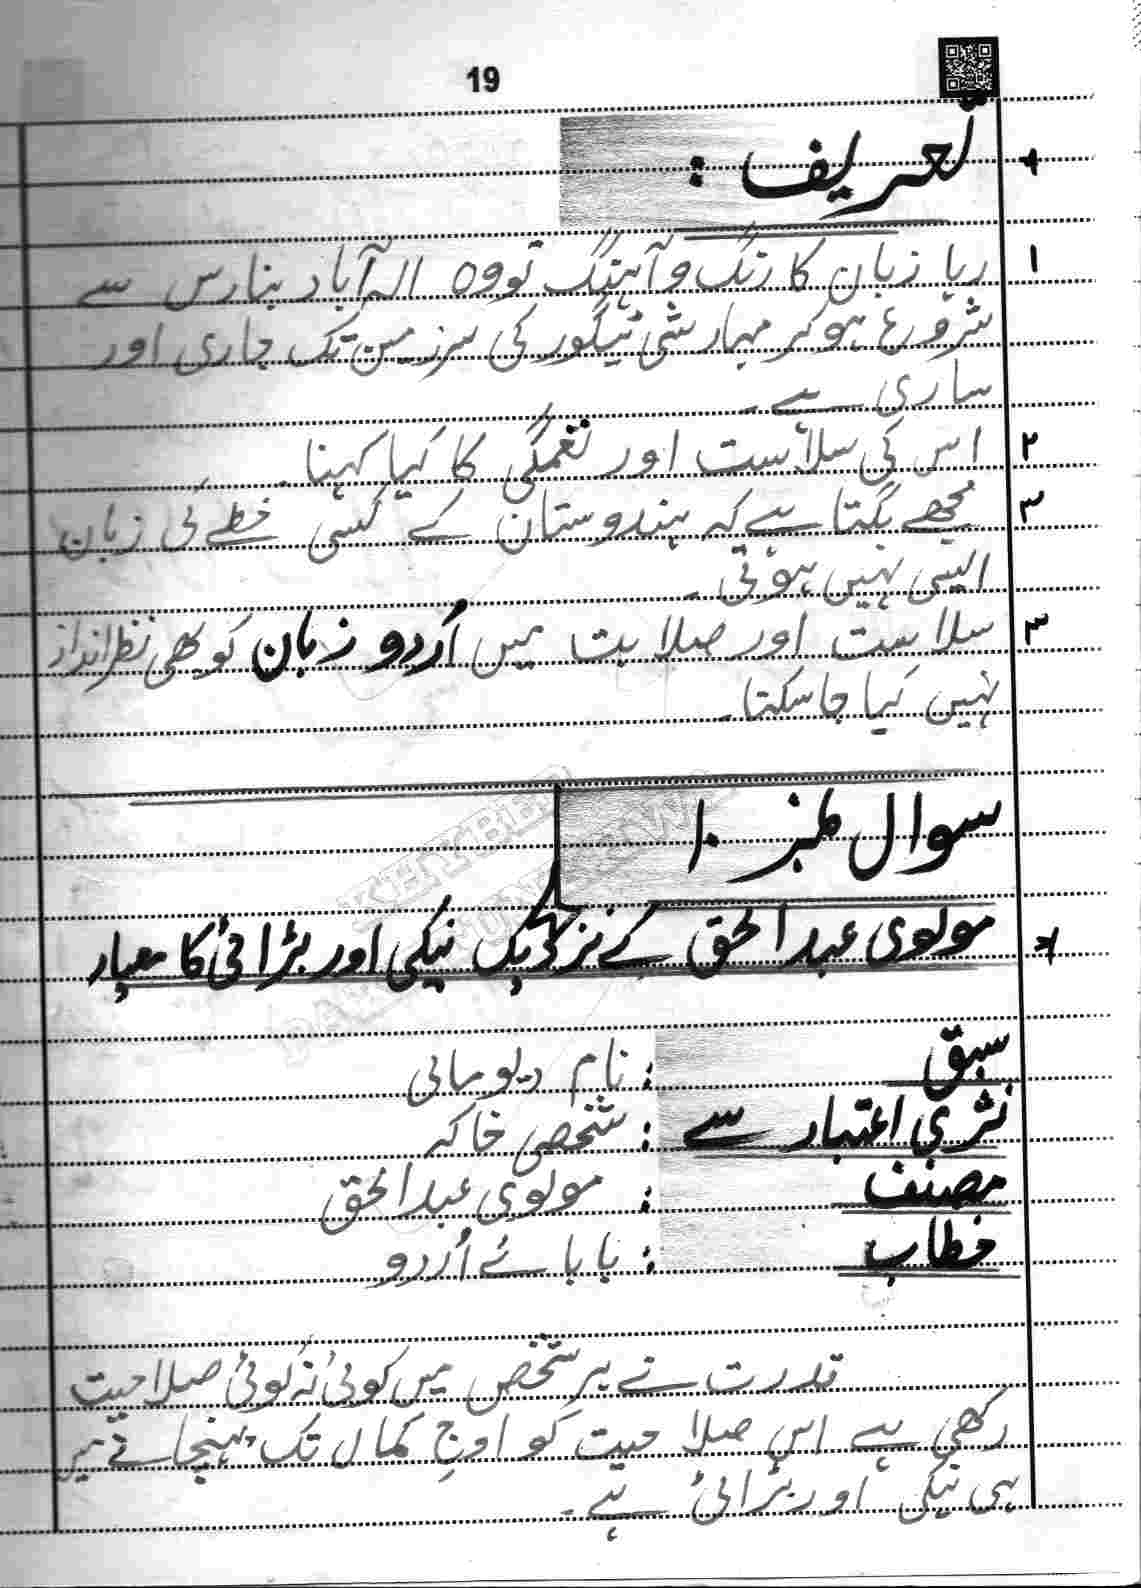 19
* تعریف :
۱ رہا زبان کا رنگ و آہنگ تو وہ الہ آباد بنارس سے
شروع ہو کر مہارشی ٹیگور کی سرزمین تک جاری اور
ساری ہے۔
۲ اس کی سلاست اور نغمگی کا کیا کہنا۔
۳ مجھے لگتا ہے کہ ہندوستان کے کسی خطے کی زبان
ایسی نہیں ہوتی۔
۳ سلاست اور صلابت میں اُردو زبان کو بھی نظر انداز
نہیں کیا جا سکتا۔
سوال نمبر ۱۰
* مولوی عبدالحق کے نزدیک نیکی اور بڑائی کا معیار
سبق : نام دیو مالی
نثری اعتبار سے : شخصی خاکہ
مصنف : مولوی عبدالحق
خطاب : بابائے اُردو
قدرت نے ہر شخص میں کوئی نہ کوئی صلاحیت
رکھی ہے اس صلاحیت کو اوجِ کمال تک پہنچانے میں
ہی نیکی اور بڑائی ہے۔
KHYBER